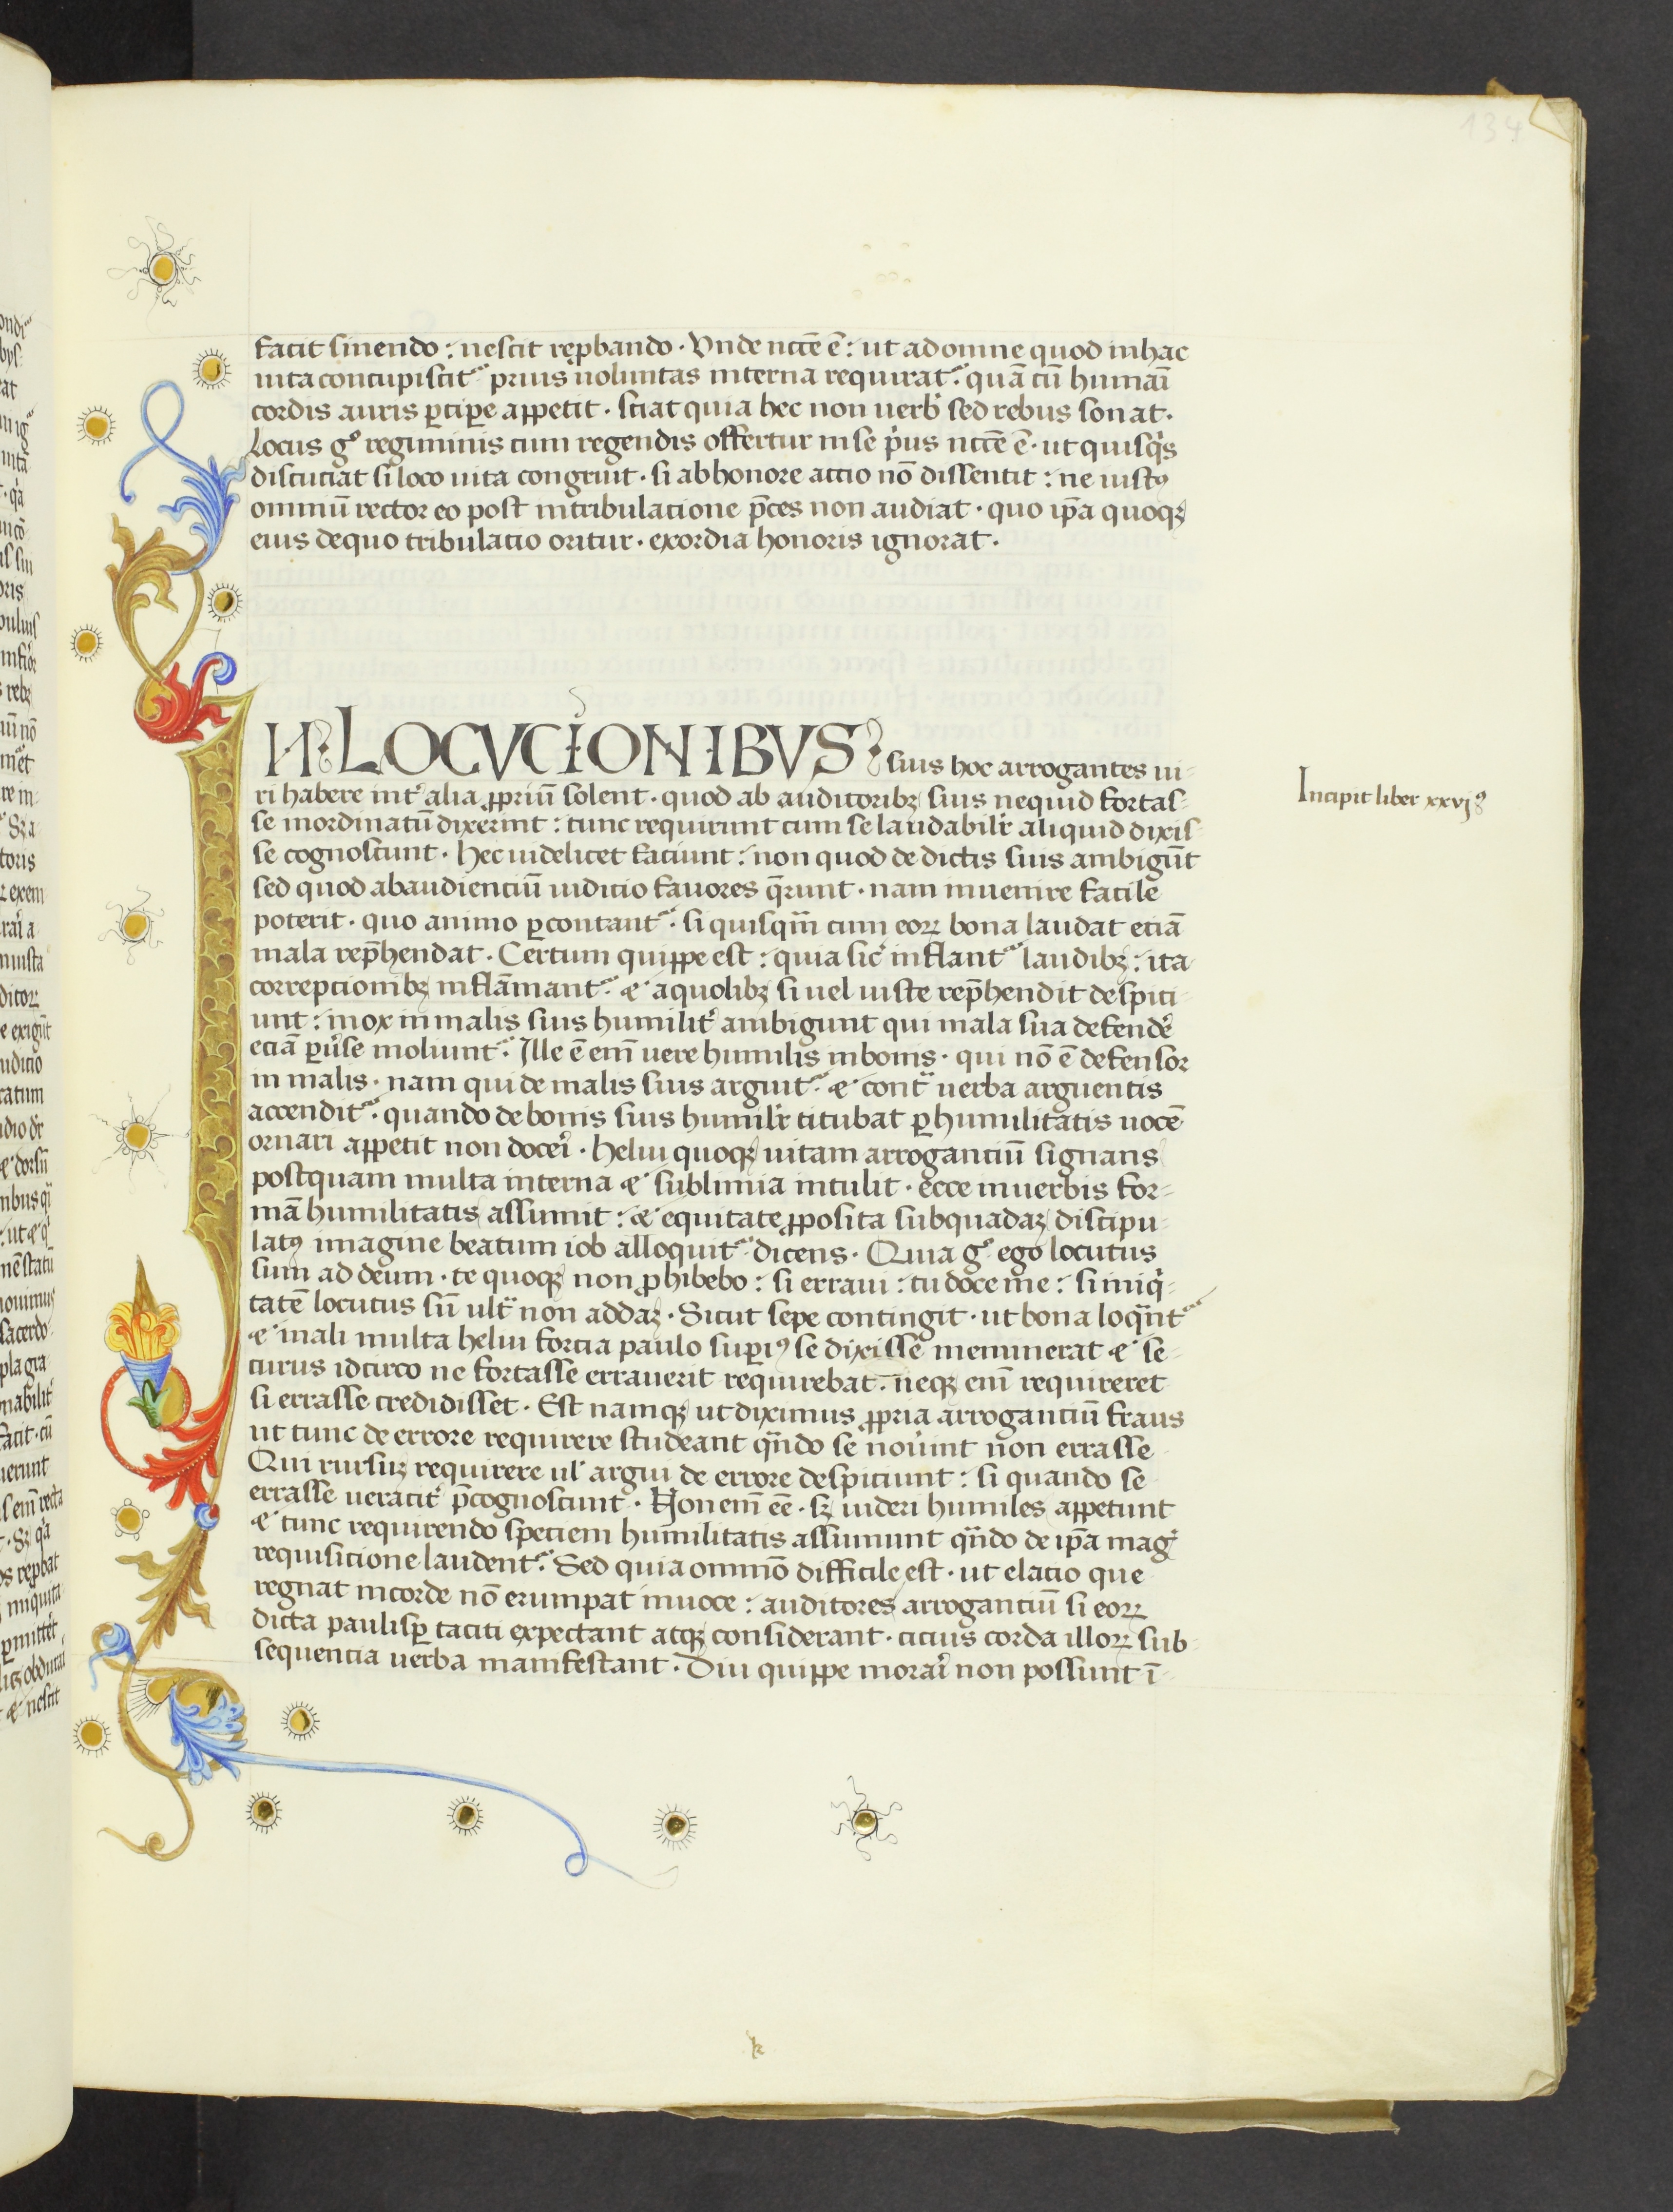 134
facit sinendo : nescit rep̱bando · Vnde nc̄cē ē : ut ad omne quod in hac
uita concupiscit᷑ prius uoluntas interna requirat᷑ · quā cū humaī
cordis auris ꝑcipe appetit · sciat quia hec non uerb̛ sed rebus sonat ·
Locus gͦ regiminis cum regendis offertur in se p̛us nc̄cē ē · ut quisq̛s
discuciat si loco uita congruit · si ab honore actio nō dissentit : ne iustꝰ
omniū rector eo post in tribulacione p̄ces non audiat · quo ip̄a quoqꝫ
eius de quo tribulacio oritur · exordia honoris ignorat ·
IN LOCVCIONIBVS suis hoc arrogantes ui-
ri habere int̛ alia ꝓpriū solent · quod ab auditoribꝫ suis ne quid fortas-
se inordinatū dixerint : tunc requirunt cum se laudabilr̄ aliquid dixis-
se cognoscunt · hec uidelicet faciunt : non quod de dictis suis ambigūt
sed quod ab audienciū iudicio fauores q̄runt · nam inuenire facile
poterit · quo animo ꝑcontant᷑ · si quisqm̄ cum eoꝝ bona laudat eciā
mala rep̄hendat · Certum quippe est : quia sic̛ inflant᷑ laudibꝫ : ita
correpcionibꝫ inflāmant᷑ · & a quolibꝫ si uel iuste rep̄hendit despici-
unt : mox in malis suis humilit̛ ambigunt qui mala sua defendē
eciā ꝑưse moliunt᷑ · Ille ē em̄ uere humilis in bonis · qui nō ē defensor
in malis · nam qui de malis suis arguit᷑ · & cont̛ uerba arguentis
accendit᷑ · quando de bonis suis humilr̄ titubat ꝑ humilitatis uocē
ornari appetit non docei̛ · heliu quoqꝫ uitam arroganciū signans
postquam multa interna & sublimia intulit · ecce in uerbis for-
mā humilitatis assumit : & equitate ꝓposita sub quadaꝫ discipu-
latꝰ imagine beatum iob alloquit᷑ dicens · Quia gͦ ego locutus
sum ad deum · te quoqꝫ non ꝓhibebo : si erraui : tu doce me : si iniq̛-
tatē locutus sū ult̛ non addaꝫ · Sicut sepe contingit · ut bona loqn̄t᷑
& mali multa heliu forcia paulo suꝑiꝰ se dixisse meminerat & se-
curus idcirco ne fortasse errauerit requirebat · neqꝫ em̄ requireret
si errasse credidisset · Est namqꝫ ut diximus ꝓpria arroganciū fraus
ut tunc de errore requirere studeant qn̄do se noưint non errasse
Qui rursuꝫ requirere ul̛ argui de errore despiciunt : si quando se
errasse ueracit̛ p̄cognoscunt · Non em̄ eē · sꝫ uideri humiles appetunt
& tunc requirendo speciem humilitatis assumunt qn̄do de ip̄a mag̛
requisicione laudent᷑ · Sed quia omnīo difficile est · ut elacio que
regnat in corde nō erumpat in uoce : auditores arroganciū si eoꝝ
dicta paulisꝑ taciti expectant atqꝫ considerant · cicius corda illoꝝ sub-
sequencia uerba manifestant · Diu quippe morai̛ non possunt ī
Incipit liber xxvjͦ